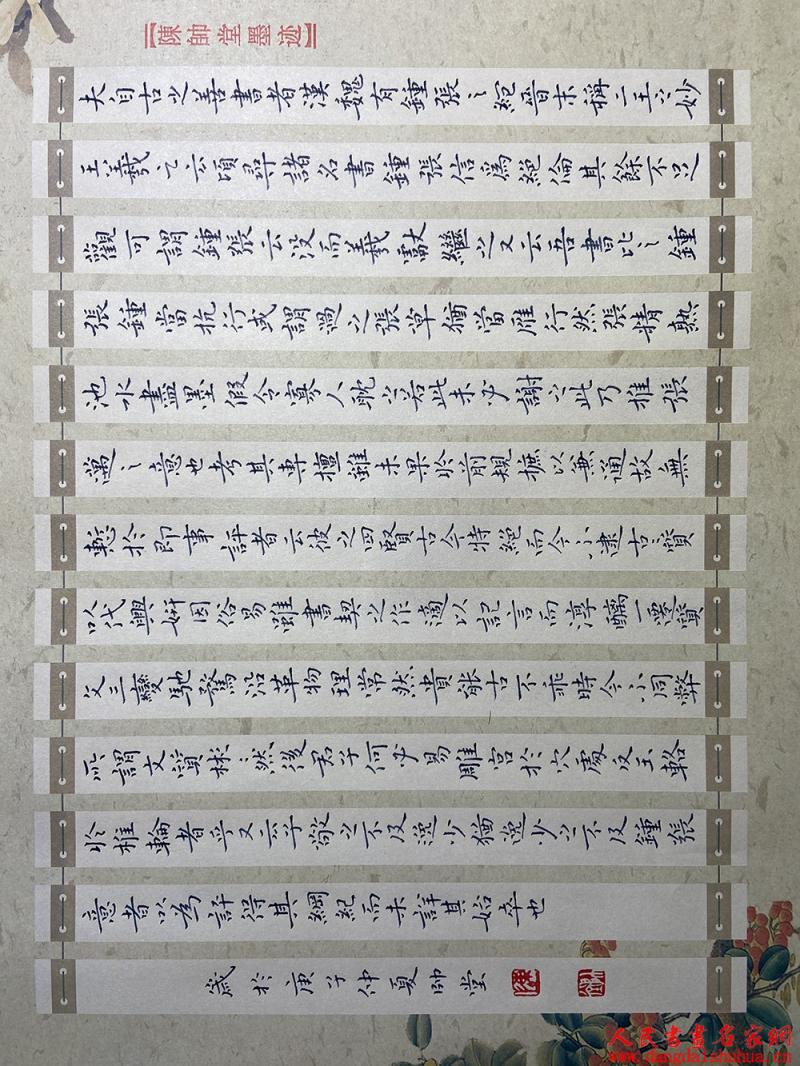 【陳帥堂墨迹】
夫自古之善書者漢魏有鍾張之絕晉末稱二王之妙
王羲之云頃尋諸名書鍾張信爲絕倫其餘不足
觀可謂鍾張云沒而羲獻繼之又云吾書比之鍾
張鍾當抗行或謂過之張草猶當雁行然張精熟
池水盡墨假令寡人耽之若此未必謝之此乃推張
邁之意也考其專擅雖未果於前規摭以兼通故無
慙於即事評者云彼之四賢古今特絕而今不逮古〻質
以代興妍因俗易雖書契之作適以記言而淳醨一遷質
文三變馳騖沿革物理常然貴能古不乖時今不同弊
所謂文質彬〻然後君子何必易雕宮於穴處反玉輅
於椎輪者乎又云子敬之不及逸少猶逸少之不及鍾張
意者以為評得其綱紀而未詳其始卒也
歲於庚子仲夏帥堂
人民书画名家網
www.dangdaishuhua.com